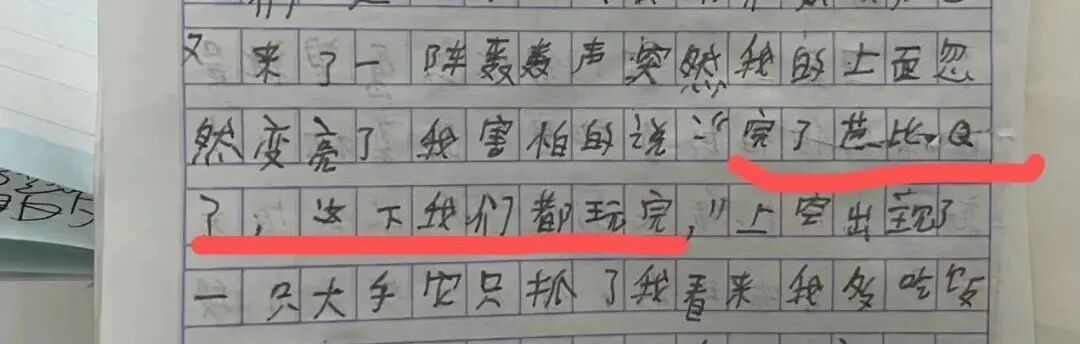 又来了一阵轰轰声突然我的上面忽
然变亮了我害怕的说:“完了芭比Q
了,这下我们都玩完,”上空出现了
一只大手它只抓了我看来我多吃饭